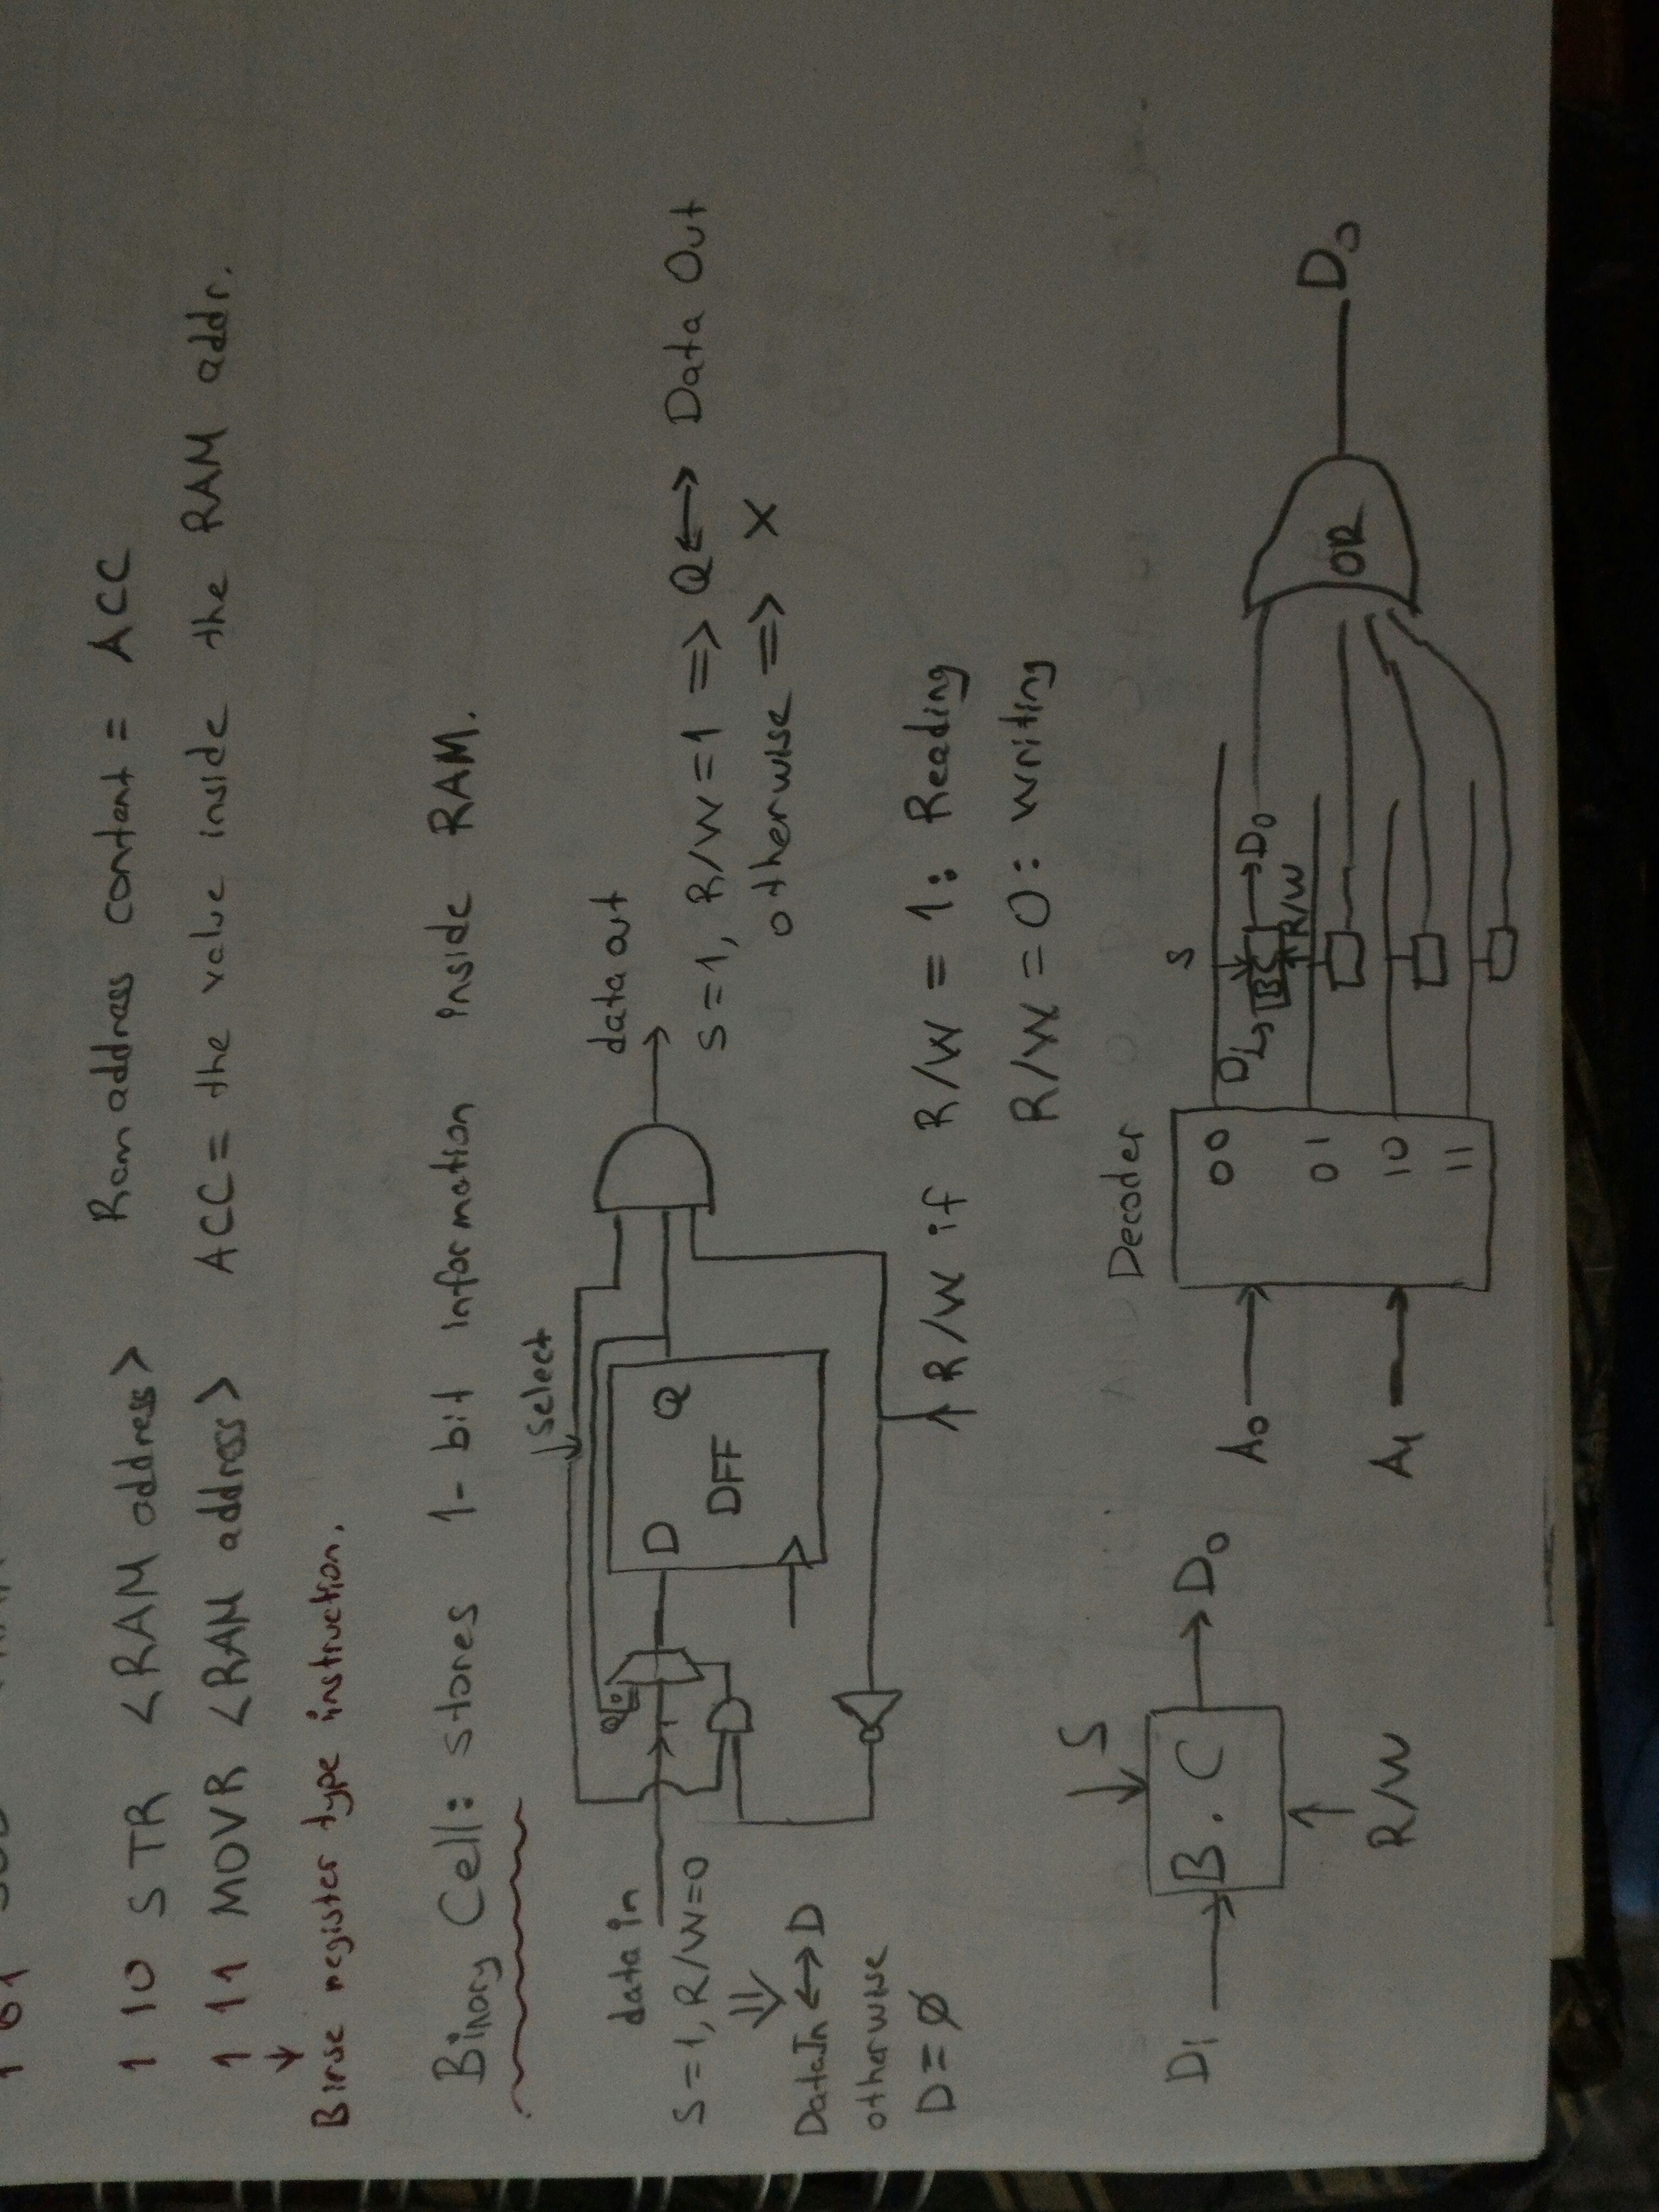 1 01 SUB
1 10 STR <RAM address> Ram address content = ACC
1 11 MOVR <RAM address> ACC = the value inside the RAM addr.
Birse register type instruction.
Binary Cell: stores 1-bit information inside RAM.
select
data in
data out
S=1, R/W=0
D Q
DFF
S=1, R/W=1 => Q<-> Data Out
otherwise => X
DataIn <-> D
otherwise
D=Ø
0
1
R/W if R/W = 1: Reading
R/W = 0: Writing
S
Di
B.C
Do
R/W
Decoder
A0
A1
00
01
10
11
S
Di
BC
Do
R/W
OR
Do